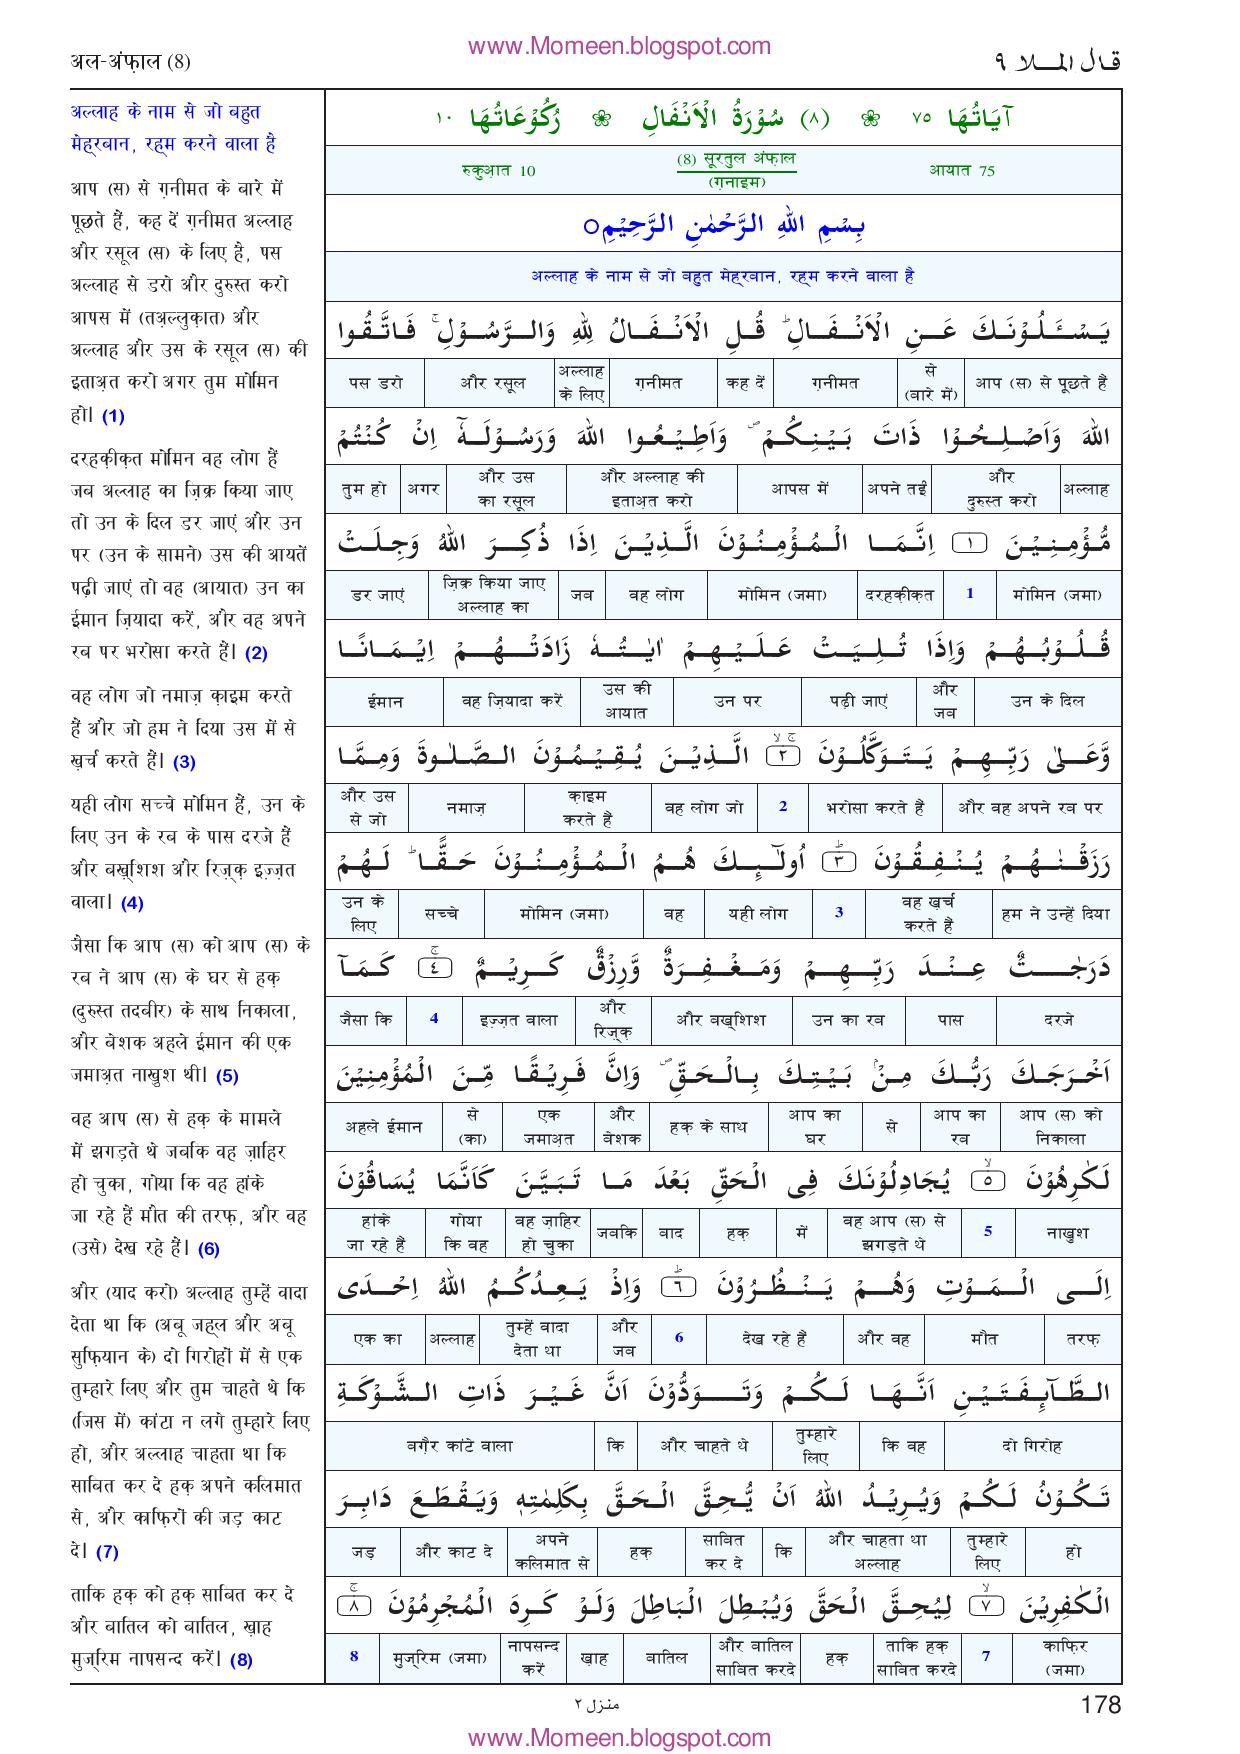 www.Momeen.blogspot.com
अल-अंफ़ाल (8)
قال الملا ٩
अल्लाह के नाम से जो बहुत
मेह्रबान, रह्म करने वाला है
आप (स) से ग़नीमत के बारे में
पूछते हैं, कह दें ग़नीमत अल्लाह
और रसूल (स) के लिए है, पस
अल्लाह से डरो और दुरुस्त करो
आपस में (तअ़ल्लुक़ात) और
अल्लाह और उस के रसूल (स) की
इताअ़त करो अगर तुम मोमिन
हो। (1)
दरहक़ीक़त मोमिन वह लोग हैं
जब अल्लाह का ज़िक्र किया जाए
तो उन के दिल डर जाएं और उन
पर (उन के सामने) उस की आयतें
पढ़ी जाएं तो वह (आयात) उन का
ईमान ज़ियादा करें, और वह अपने
रब पर भरोसा करते हैं। (2)
वह लोग जो नमाज़ क़ाइम करते
हैं और जो हम ने दिया उस में से
ख़र्च करते हैं। (3)
यही लोग सच्चे मोमिन हैं, उन के
लिए उन के रब के पास दरजे हैं
और बख़्शिश और रिज़्क़ इज़्ज़त
वाला। (4)
जैसा कि आप (स) को आप (स) के
रब ने आप (स) के घर से हक़
(दुरुस्त तदबीर) के साथ निकाला,
और बेशक अहले ईमान की एक
जमाअ़त नाख़ुश थी। (5)
वह आप (स) से हक़ के मामले
में झगड़ते थे जबकि वह ज़ाहिर
हो चुका, गोया कि वह हांके
जा रहे हैं मौत की तरफ़, और वह
(उसे) देख रहे हैं। (6)
और (याद करो) अल्लाह तुम्हें वादा
देता था कि (अबू जह्ल और अबू
सुफ़ियान के) दो गिरोहों में से एक
तुम्हारे लिए और तुम चाहते थे कि
(जिस में) कांटा न लगे तुम्हारे लिए
हो, और अल्लाह चाहता था कि
साबित कर दे हक़ अपने कलिमात
से, और काफ़िरों की जड़ काट
दे। (7)
ताकि हक़ को हक़ साबित कर दे
और बातिल को बातिल, ख़ाह
मुज्रिम नापसन्द करें। (8)
آيَاتُهَا ٧٥ ❀ (٨) سُوْرَةُ الْاَنْفَالِ ❀ رُكُوْعَاتُهَا ١٠
रुकुआ़त 10 (8) सूरतुल अंफ़ाल आयात 75
(ग़नाइम)
بِسْمِ اللهِ الرَّحْمٰنِ الرَّحِيْمِ ○
अल्लाह के नाम से जो बहुत मेह्रबान, रह्म करने वाला है
يَسْـَٔلُوْنَكَ عَنِ الْاَنْفَالِ ؕ قُلِ الْاَنْفَالُ لِلّٰهِ وَالرَّسُوْلِ ۚ فَاتَّقُوا
पस डरो | और रसूल | अल्लाह के लिए | ग़नीमत | कह दें | ग़नीमत | से (बारे में) | आप (स) से पूछते हैं
اللهَ وَاَصْلِحُوْا ذَاتَ بَيْنِكُمْ ۪ وَاَطِيْعُوا اللهَ وَرَسُوْلَهٗٓ اِنْ كُنْتُمْ
तुम हो | अगर | और उस का रसूल | और अल्लाह की इताअ़त करो | आपस में | अपने तईं | और दुरुस्त करो | अल्लाह
مُّؤْمِنِيْنَ ١ اِنَّمَا الْمُؤْمِنُوْنَ الَّذِيْنَ اِذَا ذُكِرَ اللهُ وَجِلَتْ
डर जाएं | ज़िक्र किया जाए अल्लाह का | जब | वह लोग | मोमिन (जमा) | दरहक़ीक़त | 1 | मोमिन (जमा)
قُلُوْبُهُمْ وَاِذَا تُلِيَتْ عَلَيْهِمْ اٰيٰتُهٗ زَادَتْهُمْ اِيْمَانًا
ईमान | वह ज़ियादा करें | उस की आयात | उन पर | पढ़ी जाएं | और जब | उन के दिल
وَّعَلٰى رَبِّهِمْ يَتَوَكَّلُوْنَ ٢ الَّذِيْنَ يُقِيْمُوْنَ الصَّلٰوةَ وَمِمَّا
और उस से जो | नमाज़ | क़ाइम करते हैं | वह लोग जो | 2 | भरोसा करते हैं | और वह अपने रब पर
رَزَقْنٰهُمْ يُنْفِقُوْنَ ٣ اُولٰٓئِكَ هُمُ الْمُؤْمِنُوْنَ حَقًّا ؕ لَهُمْ
उन के लिए | सच्चे | मोमिन (जमा) | वह | यही लोग | 3 | वह ख़र्च करते हैं | हम ने उन्हें दिया
دَرَجٰتٌ عِنْدَ رَبِّهِمْ وَمَغْفِرَةٌ وَّرِزْقٌ كَرِيْمٌ ٤ كَمَآ
जैसा कि | 4 | इज़्ज़त वाला | और रिज़्क़ | और बख़्शिश | उन का रब | पास | दरजे
اَخْرَجَكَ رَبُّكَ مِنْۢ بَيْتِكَ بِالْحَقِّ ۪ وَاِنَّ فَرِيْقًا مِّنَ الْمُؤْمِنِيْنَ
अहले ईमान | से (का) | एक जमाअ़त | और बेशक | हक़ के साथ | आप का घर | से | आप का रब | आप (स) को निकाला
لَكٰرِهُوْنَ ٥ يُجَادِلُوْنَكَ فِى الْحَقِّ بَعْدَ مَا تَبَيَّنَ كَاَنَّمَا يُسَاقُوْنَ
हांके जा रहे हैं | गोया कि वह | वह ज़ाहिर हो चुका | जबकि | बाद | हक़ | में | वह आप (स) से झगड़ते थे | 5 | नाख़ुश
اِلَى الْمَوْتِ وَهُمْ يَنْظُرُوْنَ ٦ وَاِذْ يَعِدُكُمُ اللهُ اِحْدَى
एक का | अल्लाह | तुम्हें वादा देता था | और जब | 6 | देख रहे हैं | और वह | मौत | तरफ़
الطَّآئِفَتَيْنِ اَنَّهَا لَكُمْ وَتَوَدُّوْنَ اَنَّ غَيْرَ ذَاتِ الشَّوْكَةِ
बग़ैर कांटे वाला | कि | और चाहते थे | तुम्हारे लिए | कि वह | दो गिरोह
تَكُوْنُ لَكُمْ وَيُرِيْدُ اللهُ اَنْ يُّحِقَّ الْحَقَّ بِكَلِمٰتِهٖ وَيَقْطَعَ دَابِرَ
जड़ | और काट दे | अपने कलिमात से | हक़ | साबित कर दे | कि | और चाहता था अल्लाह | तुम्हारे लिए | हो
الْكٰفِرِيْنَ ٧ لِيُحِقَّ الْحَقَّ وَيُبْطِلَ الْبَاطِلَ وَلَوْ كَرِهَ الْمُجْرِمُوْنَ ٨
8 | मुज्रिम (जमा) | नापसन्द करें | ख़ाह | बातिल | और बातिल साबित करदे | हक़ | ताकि हक़ साबित करदे | 7 | काफ़िर (जमा)
منزل ٢
178
www.Momeen.blogspot.com